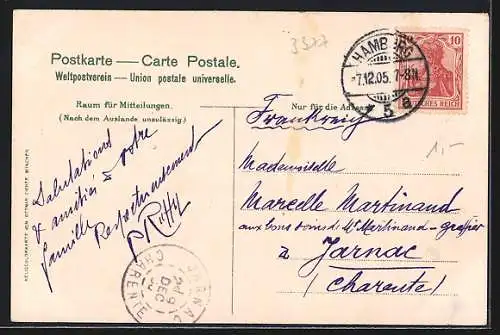 Postkarte — Carte Postale.
Weltpostverein – Union postale universelle.
3327
HAMBURG
-7.12.05. 7-8N.
* 5 a
10
DEUTSCHES REICH
Raum für Mitteilungen.
(Nach dem Auslande unzulässig.)
Nur für die Adresse
Frankreich
Salutations
& amitiés à votre
famille
Respectueusement
Mademoiselle
Marcelle Martinand
aux bons soins de Mr Martinand - greffier
à Jarnac
(Charente)
1,-
JARNAC
9 DEC
CHARENTE